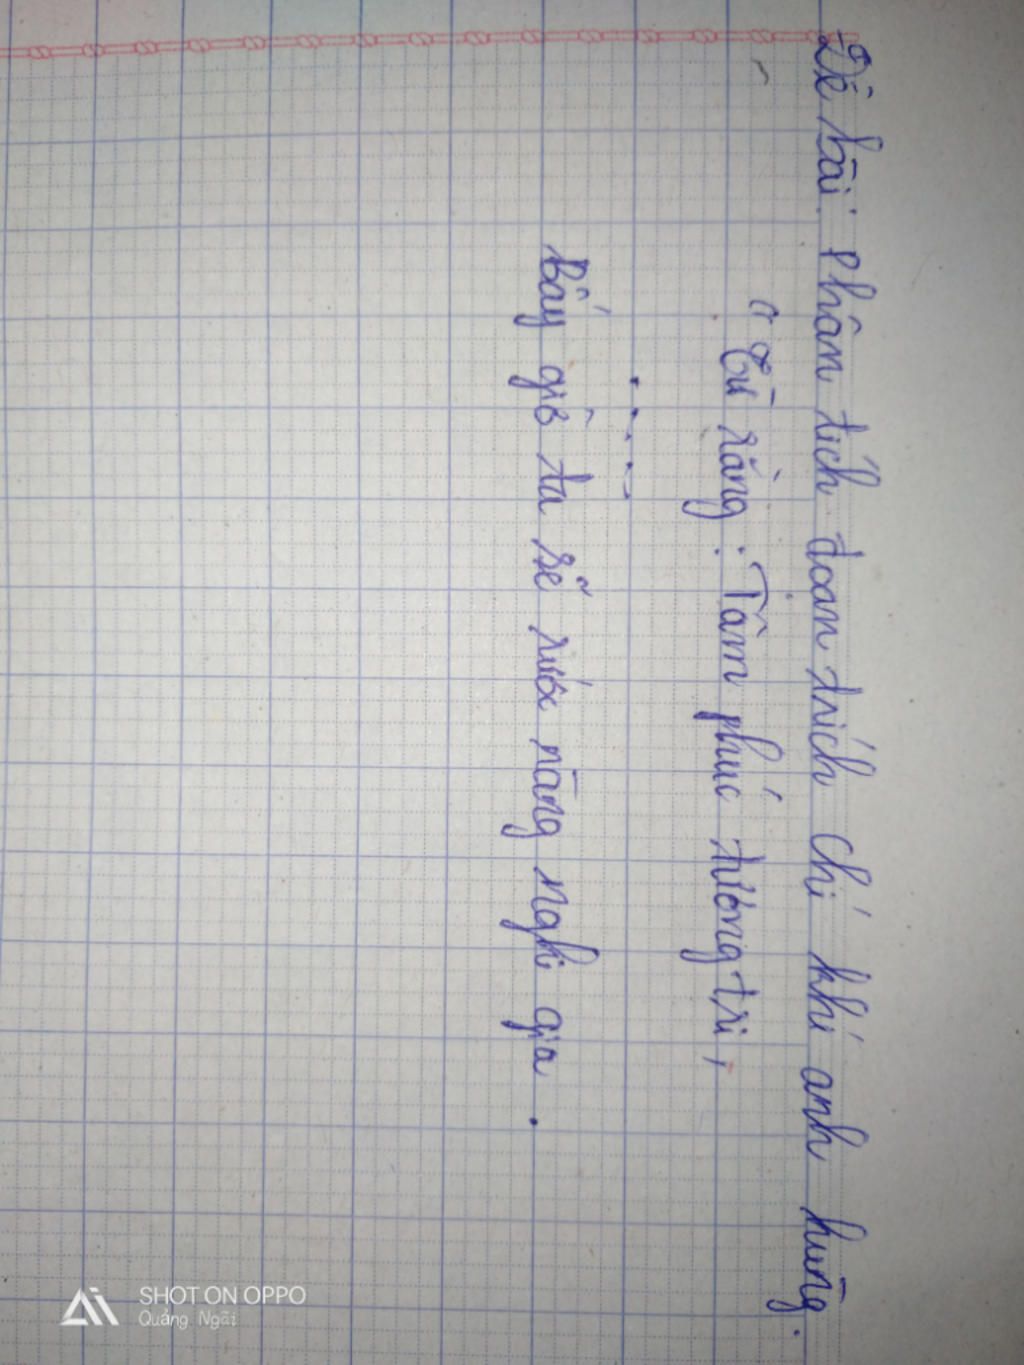 Đề bài: Phân tích đoạn trích Chí khí anh hùng.
"Từ rằng: Tâm phúc tương tri,
.....
Bấy giờ ta sẽ rước nàng nghi gia.
SHOT ON OPPO
Quảng Ngãi